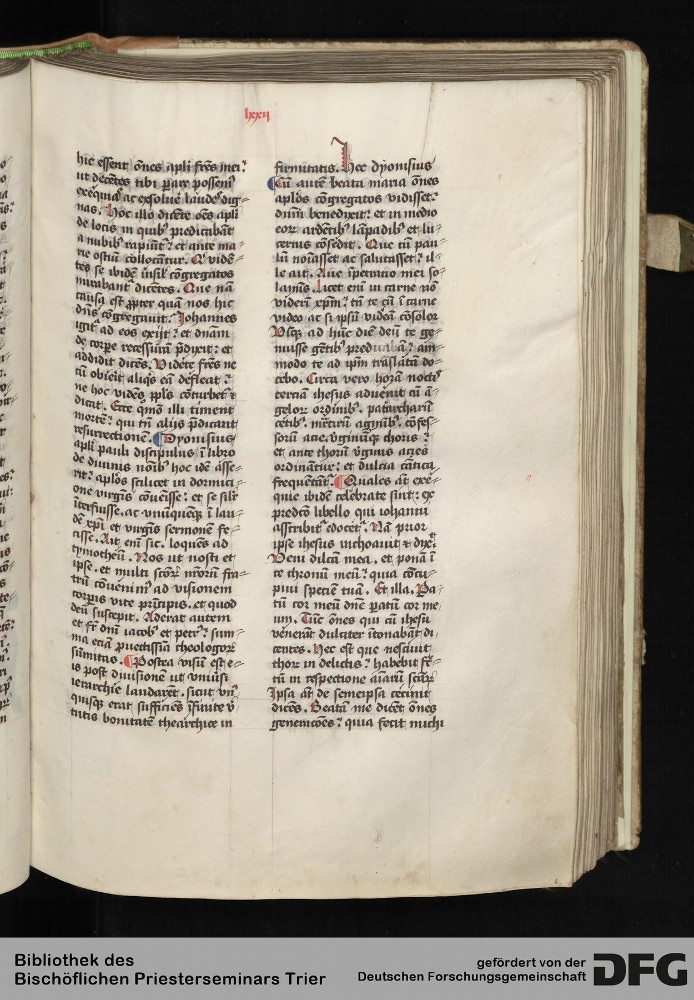 lxxij
hic essent om̄es apl̓i fr̄es mei⸵
ut decētes tibi ꝑare possem᷒
exequias ac exsolue᷒ laudes dig⸗
nas. Hoc illo dicēte oēs apl̓i
de locis in quib᷒ predicabāt
a nubib᷒ rapiūt᷒⸵ et ante ma⸗
rie ostiū collocātur. Qi vidē⸗
tes se ibidē insil̓ cōgregatos
mirabant᷒ dicētes. Que nā
causa est ꝓpter quam nos hic
dn̄s cōgregauit⸵ Johannes
igit᷒ ad eos exijt⸵ et dn̄am
de corpe recessurā p̄dixit⸵ et
addidit dicēs. Videte fr̄es ne
cū obierit aliq̓s eā defleat⸵
ne hoc vidēs ppl̓s cōturbet᷒ ⁊
dicat. Ecce qm̄o illi timent
mortē⸵ qui tn̄ alijs p̄dicant
resurrectionē. Dyonisius
apl̓i pauli discipulus ī libro
de diuinis noīb᷒ hoc idē asse⸗
rit⸵ apl̓os scilicet in dormici⸗
one virgīs cōuēisse⸵ et se sil̓r
īterfuisse. ac vnūquēq̓ ī lau⸗
dē xp̄i et virgīs sermonē fe⸗
cisse. Ait em̄ sic. loquēs ad
tymotheū. Nos ut nosti et
ipse. et multi scōr nr̄orū fra⸗
trū cōuenim᷒ ad visionem
corpis vite prīcipis. et quod
deū suscepit. Aderat autem
et fr̄ dn̄i iacob᷒ et petr᷒⸵ sum⸗
ma eciā ꝓuectissīa theologor
sūmitas. Postea visū est e⸗
is post diuisionē ut vniūsi
ierarchie laudarēt. sicut vn᷒
quisq̓ erat sufficiēs īfinite v̓
tutis bonitatē thearchice in
firmitatis. Hec dyonisius
Cū autē beata maria om̄es
apl̓os cōgregatos vidisset⸵
dn̄m benedixit⸵ et in medio
eor ardētib᷒ lāpadib᷒ et lu⸗
cernis cōsedit. Que cū pau⸗
lū nouisset ac salutasset⸵ il⸗
le ait. Aue īperatrio mei so⸗
laminīs. Licet em̄ in carne nō
viderī xp̄m⸵ tn̄ te cū ī carne
video ac si ipsū videā cōsolor
Vsq̓ ad hūc diē deū te ge⸗
nuisse gētib᷒ predicabā⸵ am⸗
modo te ad ip̄m trāslatā do⸗
cebo. Circa vero horā nocti᷒
terciā ihesus aduenit cū ā⸗
gelor ordinib᷒. patriarcharū
cetib᷒. mr̄irū agmīb᷒. cōfes⸗
sorū acie. v̓ginūq̓ choris⸵
et ante thorū v̓ginis acies
ordinātur⸵ et dulcia cātica
frequētāt᷒. Quales aūt exe⸗
quie ibidē celebrate sint⸵ ex
predc̄o libello qui iohanni
asscribit᷒ edocet᷒. Nā prior
ipse ihesus inchoauit ⁊ dix̄⸵
Veni dilc̄a mea. et ponā ī
te thronū meū⸵ quia cōcu⸗
piui speciē tuā. Et illa. Pa⸗
tū cor meū dn̄e patū cor me⸗
um. Tūc om̄es qui cū ihesu
venerāt dulciter ītonabāt di⸗
centes. Hec est que nesciuit
thor in delictis⸵ habebit fc̄⸗
tū in respectione aīarū scār
Ipsa aūt de semeipsa cecinit
dicēs. Beatā me dicēt om̄es
genera͞coes⸵ quia fecit michi
Bibliothek des
Bischöflichen Priesterseminars Trier
gefördert von der
Deutschen Forschungsgemeinschaft
DFG